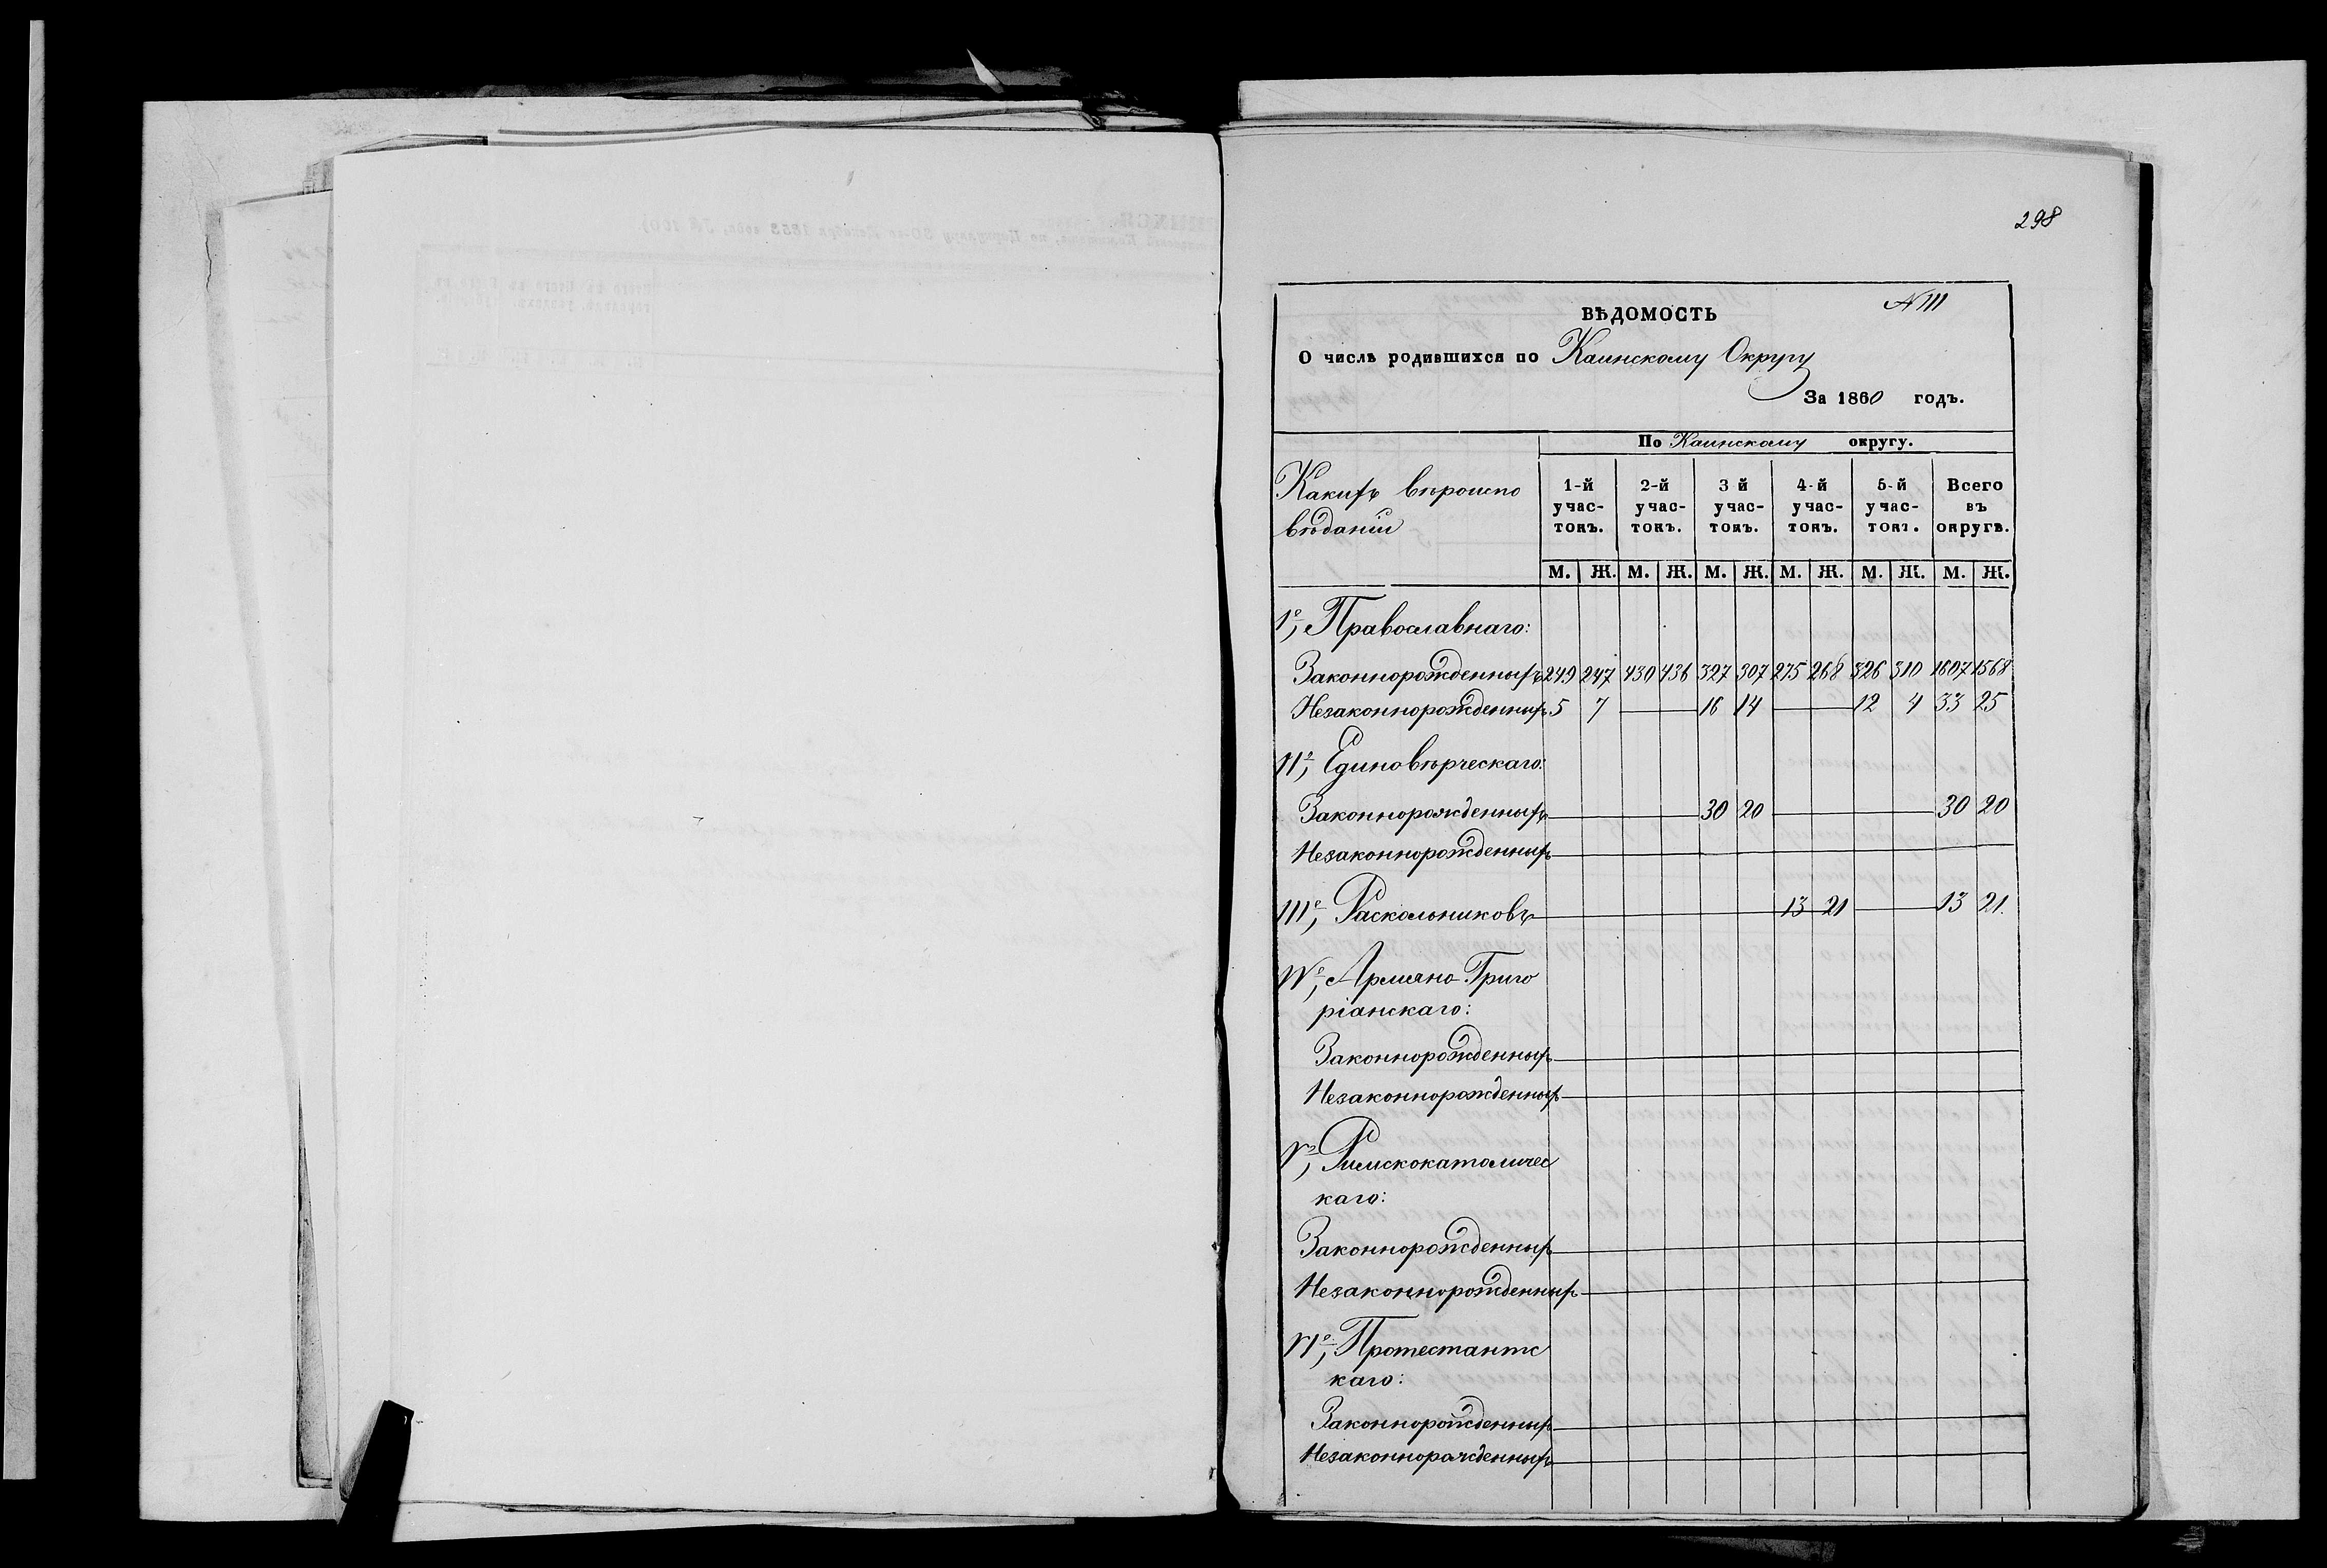 298
ВѢДОМОСТЬ № III
О числѣ родившихся по Каинскому Округу
За 1860 годъ.
По Каинскому округу.
Какихъ вѣроиспо
вѣданій
1-й участокъ. 2-й участокъ. 3 й участокъ. 4-й участокъ. 5-й участокъ. Всего въ округѣ.
М. Ж. М. Ж. М. Ж. М. Ж. М. Ж. М. Ж.
Iе, Православнаго:
Законнорожденныхъ 249 247 430 436 327 307 275 268 326 310 1607 1568
Незаконнорожденныхъ 5 7 — 16 14 — 12 4 33 25
IIе, Единовѣрческаго:
Законнорожденныхъ — 30 20 — 30 20
Незаконнорожденныхъ —
IIIе, Раскольниковъ — 13 21 — 13 21.
IVе, Армяно-Григо
ріанскаго:
Законнорожденныхъ —
Незаконнорожденныхъ —
Vе, Римскокатоличес
каго:
Законнорожденныхъ —
Незаконнорожденныхъ —
VIе, Протестантс
каго:
Законнорожденныхъ —
Незаконнорожденныхъ —